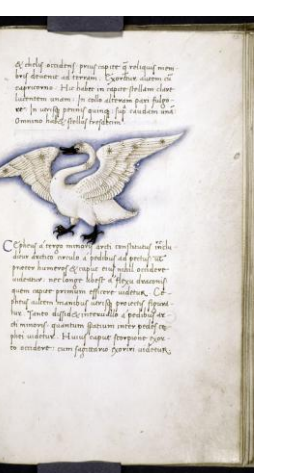 & chelis occidens prius capite q̄ reliquis mem-
bris devenit ad terram. Exoritur autem cū
capricorno. Hic habet in capite stellam clare
lucentem unam: In collo alteram pari fulgo-
re: In utrisq; pennis quinq; sup caudam unā
Omnino habet stellas tredecim.
Cepheus a tergo minoris arcti constitutus inclu
ditur arctico circulo a pedibus ad pectus: ut
praeter humeros & caput eius nihil occidere
videatur: nec longe abest a flexu draconis
quem caput primum efficere videtur. Ce-
pheus autem manibus utrisq; proiectis figura-
tur. Tanto dissidet intervallo a pedibus ar-
cti minoris: quantum spatium inter pedes ce-
phei videtur. Huius caput scorpione exor-
to occidere: cum sagittario exoriri videtur.